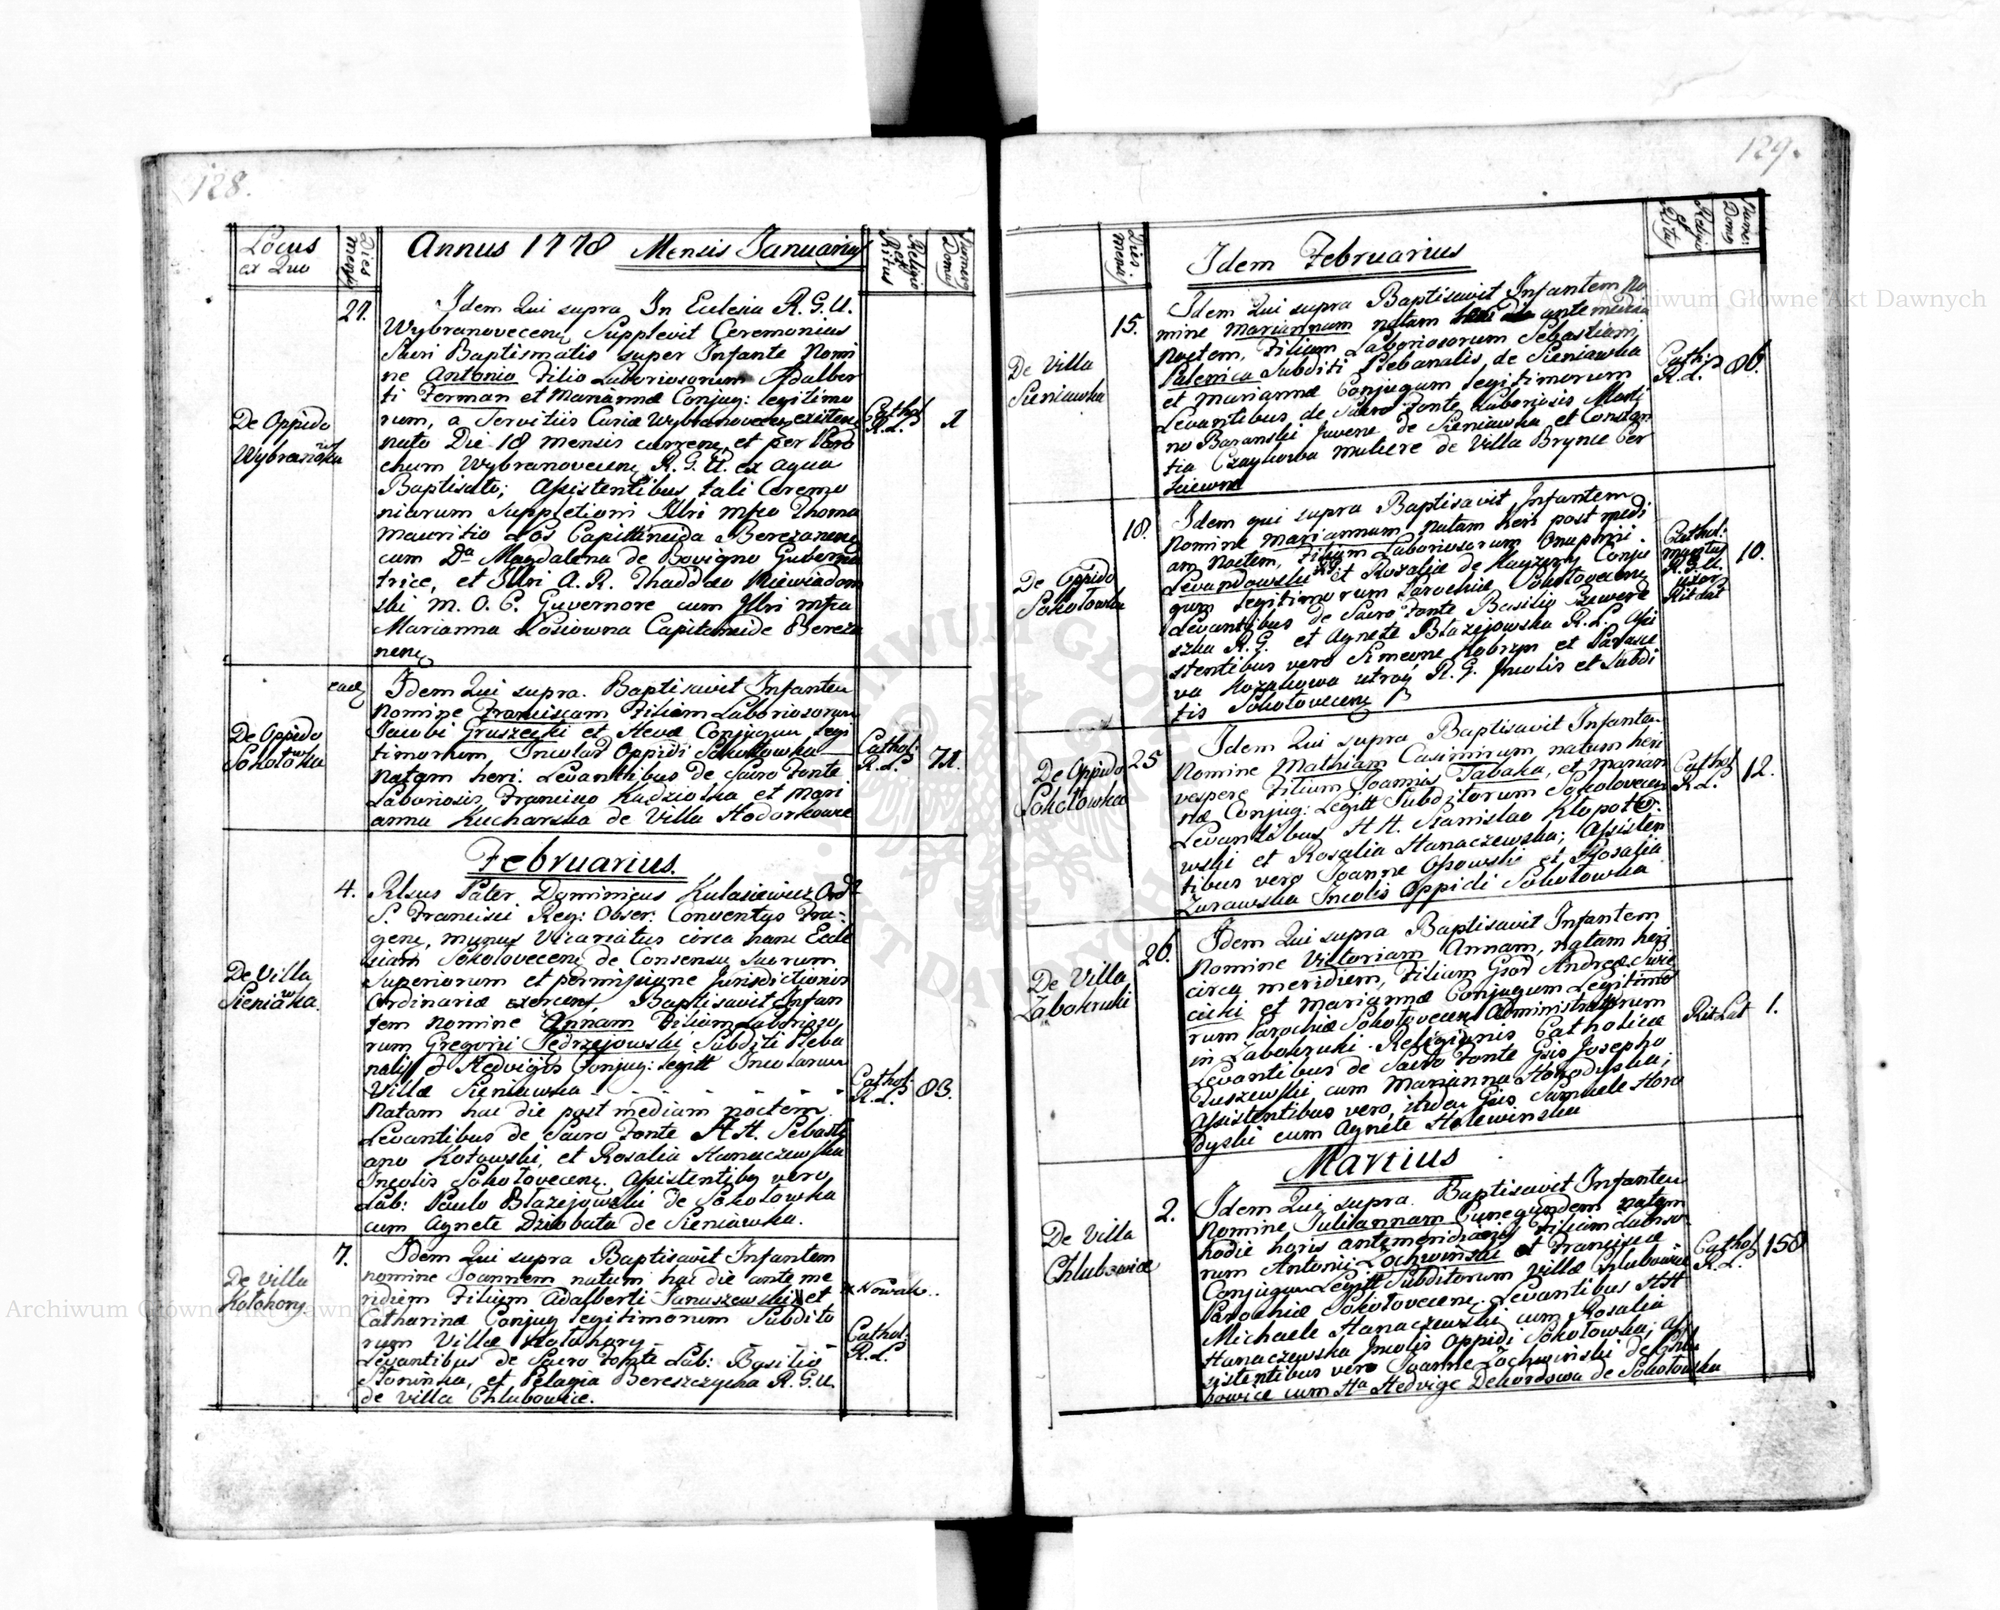 128.
Locus
ex Quo
Dies
Mensis
Annus 1778 Mensis Januarius
Religio
et
Ritus
Numerus
Domus
De Oppido
Wybranówka
27.
Idem Qui supra In Ecclesia R. G. U.
Wybranovecen Supplevit Ceremonias
Sacri Baptismatis super Infante Nomi
ne Antonio Filio Laboriosorum Adalber
ti Ferman et Mariannæ Conjug: legitimo
rum, a Servitiis Curiæ Wybranovecen existen
nato Die 18 mensis curren, et per Paro
chum Wybranovecen R. G. U. ex aqua
Baptisato; Assistentibus tali Ceremo
niarum Suppletioni Illri Mfco Thoma
Mauritio Łos Capittineida Berezanen
cum Da Magdalena de Bovigno Guberna
trice, et Illri A. R. Thaddæo Niewiadom
ski M. O. C. Guvernore cum Illri mfca
Marianna Łosiowna Capitaneide Bereza
nen
Cathol
R. L.
1
De Oppido
Sokołówka
ead
Idem Qui supra. Baptisavit Infantem
Nomine Franciscam Filiam Laboriosorum
Jacobi Gruszecki et Hevæ Conjugum legi
timorum, Incolar Oppidi Sokołowka
Natam heri. Levantibus de Sacro Fonte
Laboriosis Francisco Kudziolka et Mari
anna Kucharska de Villa Hodorkowce
Cathol:
R. L.
71.
Februarius.
De Villa
Sieniawka.
4.
Rlsus Pater Dominicus Kulasiewicz Ord
S. Francisci Reg: Obser: Conventus Fra-
gen, munus Vicariatus circa hanc Eccle
siam Sokołovecen de Consensu suorum
Superiorum et permissione Jurisdictionis
Ordinariæ exercens, Baptisavit Infan
tem Nomine Annam Filiam Laborioso
rum Gregorii Jedrzejowski Subditi Pleba
nalis et Hedvigis Conjug: legitt Incolarum
Villæ Sieniawka - - - - -
Natam hac die post mediam noctem.
Levantibus de Sacro Fonte HH. Sebasty
ano Kotowski, et Rosalia Hanaczewska
Incolis Sokołovecen. Assistentibus vero
Lab: Paulo Błazejowski de Sokołowka
cum Agnete Dziobata de Sieniawka.
Cathol:
R. L.
83.
De Villa
Kołohory
7.
Idem Qui supra Baptisavit Infantem
nomine Joannem natum hac die ante me
ridiem Filium Adalberti Januszewski x et
Catharinæ Conjug legitimorum Subdito
rum Villæ Kołahory
Levantibus de Sacro Fonte Lab: Basilio
Słoninka, et Pelagia Bereszczycha R. G. U.
de Villa Chlubowice.
x Nowak..
Cathol:
R. L.
129.
Dies.
Mensis
Idem Februarius
Religio
et
Ritus
Nume:
Domus
De Villa
Sieniawka
15.
Idem Qui supra Baptisavit Infantem No
mine Mariannam natam ante mediam
Noctem, Filiam Laboriosorum Sebastiani
Palenica Subditi Plebanalis, de Sieniawka
et Mariannæ Conjugum legitimorum
Levantibus de Sacro Fonte Laboriosis Marti
no Baranski Juvene de Sieniawka et Constan
tia Czaykowa muliere de Villa Brynce Cer
kiewne
Cathol
R. L.
86.
De Oppido
Sokołowka
18.
Idem qui supra Baptisavit Infantem
Nomine Mariannam, natam heri post medi
am Noctem, Filiam Laboriosorum Onuphrii
Levandowski et Rosaliæ de Kuczmy Conju
gum legitimorum Parochiæ Sokołovecen
Levantibus de Sacro Fonte Basilio
R. G. et Agnete Błazejowska R. L. Assi
stentibus vero Simeone Kobryn et Parasce
va Kozakowa utroq R. G. Incolis et Subdi
tis Sokołovecen
Cathol:
maritus
R. G. U.
uxor
Rit Lat
10.
De Oppido
Sokołowka
25
Idem Qui supra Baptisavit Infantem
Nomine Mathiam Casimirum, natum heri
vespere Filium Joannis Tabaka, et Marian
næ Conjug: Legitt Subditorum Sokołovecen
Levantibus HH. Stanislao Kłopotto-
wski et Rosalia Hanaczewska; Assisten
tibus vero Joanne Ossowski et Rosalia
Zurawska Incolis Oppidi Sokołowka
Cathol
R. L.
12.
De Villa
Zabokruki
26.
Idem Qui supra Baptisavit Infantem
Nomine Victoriam Annam, natam heri
circa meridiem, Filiam Gsod Andreæ
cicki et Mariannæ Conjugum Legitimo
rum Parochiæ Sokołovecen Administratorum
in Zabokruki Religionis Catholicæ
Levantibus de Sacro Fonte Gsis Josepho
Puszewski cum Marianna Horodyska;
Assistentibus vero, itidem Gsis Samuele Horo
dyski cum Agnete Holewinska
Rit Lat
1.
Martius
De Villa
Chlubowice
2.
Idem Qui supra. Baptisavit Infantem
Nomine Juliannam Cunegundem natam
hodie horis antemeridianis Filiam Laborio
rum Antonii Łochwinski et Franciscæ
Conjugum Legitt Subditorum Villæ Chlubowice
Parochiæ Sokołovecen. Levantibus HH
Michaele Hanaczewski cum Rosalia
Hanaczewska Incolis Oppidi Sokołowka; as
sistentibus vero Joanne Łochwinski de Chlu
bowice cum Ha Hedvige Dekordowa de Sokołowka
Cathol
R. L.
158
Archiwum Główne Akt Dawnych
Archiwum Główne Akt Dawnych
ARCHIWUM GŁÓWNE AKT DAWNYCH